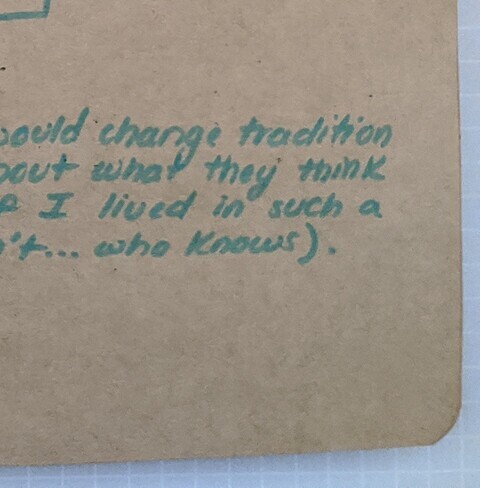 would change tradition
about what they think
if I lived in such a
n't... who knows).